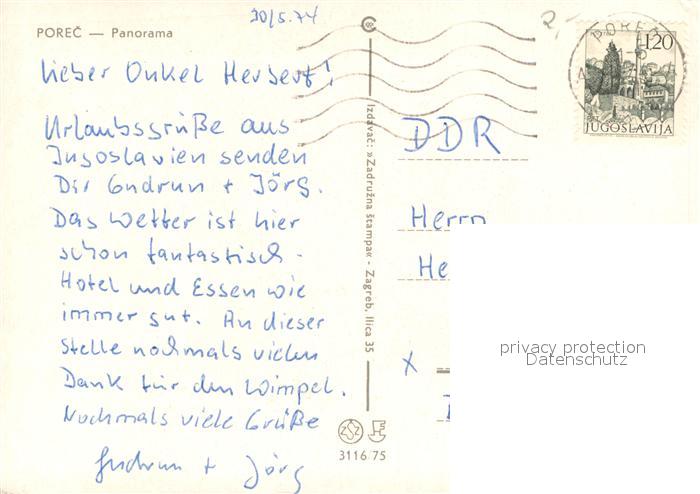 30/5.74
POREČ — Panorama
Lieber Onkel Herbert!
Urlaubsgrüße aus
Jugoslavien senden
Dir Gudrun + Jörg.
Das Wetter ist hier
schon fantastisch.
Hotel und Essen wie
immer gut. An dieser
Stelle nochmals vielen
Dank für den Wimpel.
Nochmals viele Grüße
Gudrun + Jörg
Izdavač: »Zadružna štampa« - Zagreb, Ilica 35
3116/75
2,-
POREČ
1.20
JUGOSLAVIJA
DDR
Herrn
He
X
privacy protection
Datenschutz